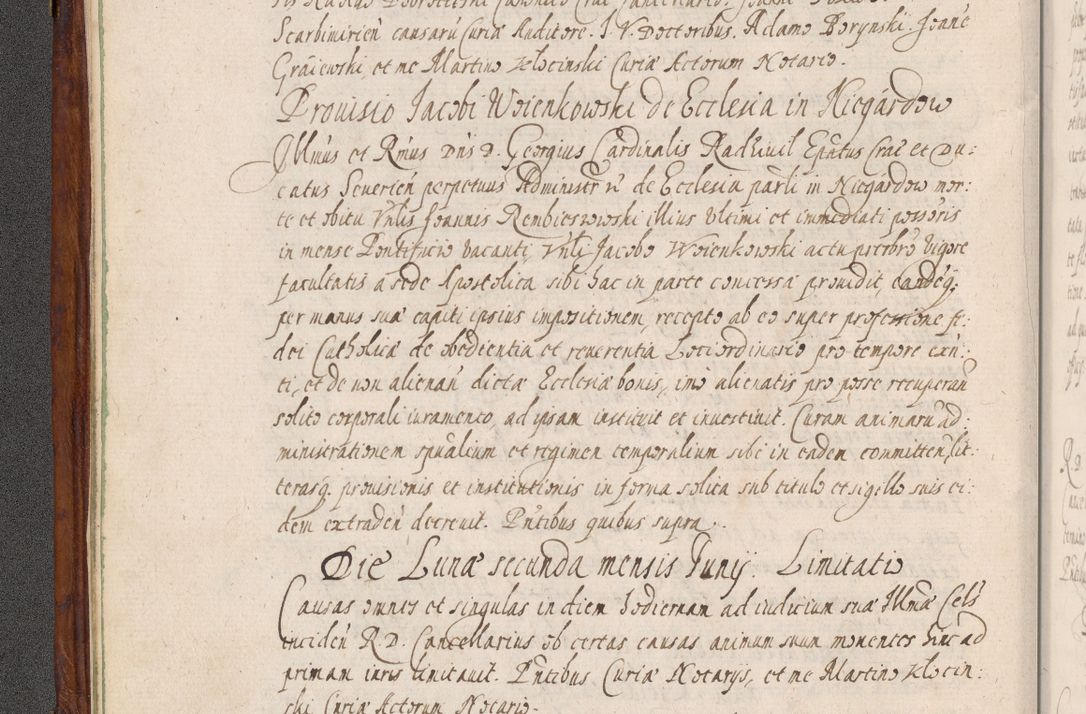 Scarbimirień causarũ Curiæ Auditore. I. V. Doctoribus. Adamo Borynski. Joañe
Graiewski et me Martino Kłocinski Curiæ Actorum Notario.
Prouisio Jacobi Woienkowski de Ecclesia in Niegardow
Illm̃us et Rm̃us Dñs D. Georgius Cardinalis Radziuil Epãtus Crac̃ et Du:
catus Seuerień perpetuus Administr̃ r̃ de Ecclesia parl̃i in Niegardow mor:
te et obitu Vñlis Joannis Rembieszowski illius vltimi et immediati possõris
in mense Pontificio vacanti, Vñli Jacobo Woienkowski actu presbr̃o vigore
facultatis a sede Apostolica sibi hac in parte concessa prouidit, eandeq̃;
per manus suæ capiti ipsius impositionem, recepto ab eo super professione fi:
dei Catholicæ de obedientia et reuerentia Loci ordinario pro tempore exñ:
ti, et de non alienań dictæ Ecclesiæ bonis, imo alienatis pro posse recuperań
solito corporali iuramento, ad ipsam instituit et inuestiuit. Curam animarũ ad:
ministrationem spũalium et regimen temporalium sibi in eadem committeń, lit:
terasq̃. prouisionis et institutionis in forma solita sub titulo et sigillo suis ei:
dem extradeń decreuit. Pñtibus quibus supra.
Die Lunæ secunda mensis Junij. Limitatio
Causas omnes et singulas in diem hodiernam ad iudicium suæ Illm̃æ Cels̃
incideń R. D. Cancellarius ob certas causas animum suum mouentes hinc ad
primam iuris limitauit. Pñtibus Curiæ Notarijs, et me Martino Kłocin:
ski Curiæ Actorum Notario.